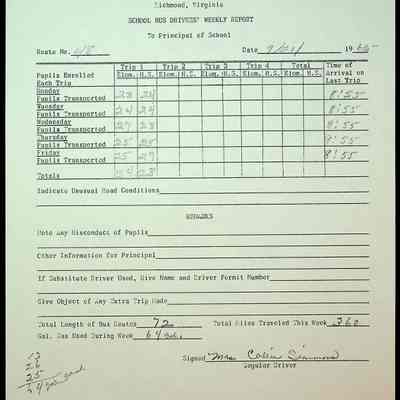 Richmond, Virginia
SCHOOL BUS DRIVERS' WEEKLY REPORT
To Principal of School
Route No. 48 Date 19 66
Trip 1 Trip 2 Trip 3 Trip 4 Total Time of
Pupils Enrolled Elem. H.S. Elem. H.S. Elem. H.S. Elem. H.S. Elem. H.S. Arrival on
Each Trip Last Trip
Monday
Pupils Transported 23 24 8:55
Tuesday
Pupils Transported 24 24 8:55
Wednesday
Pupils Transported 27 28 8:55
Thursday
Pupils Transported 25 25 8:55
Friday
Pupils Transported 25 27 8:55
Totals
Indicate Unusual Road Conditions
REMARKS
Note Any Misconduct of Pupils
Other Information for Principal
If Substitute Driver Used, Give Name and Driver Permit Number
Give Object of Any Extra Trip Made
Total Length of Bus Routes 72 Total Miles Traveled This Week 360
Gal. Gas Used During Week 64 gal.
Signed Mrs. Simmons
Regular Driver
13
26
25
64 gas used